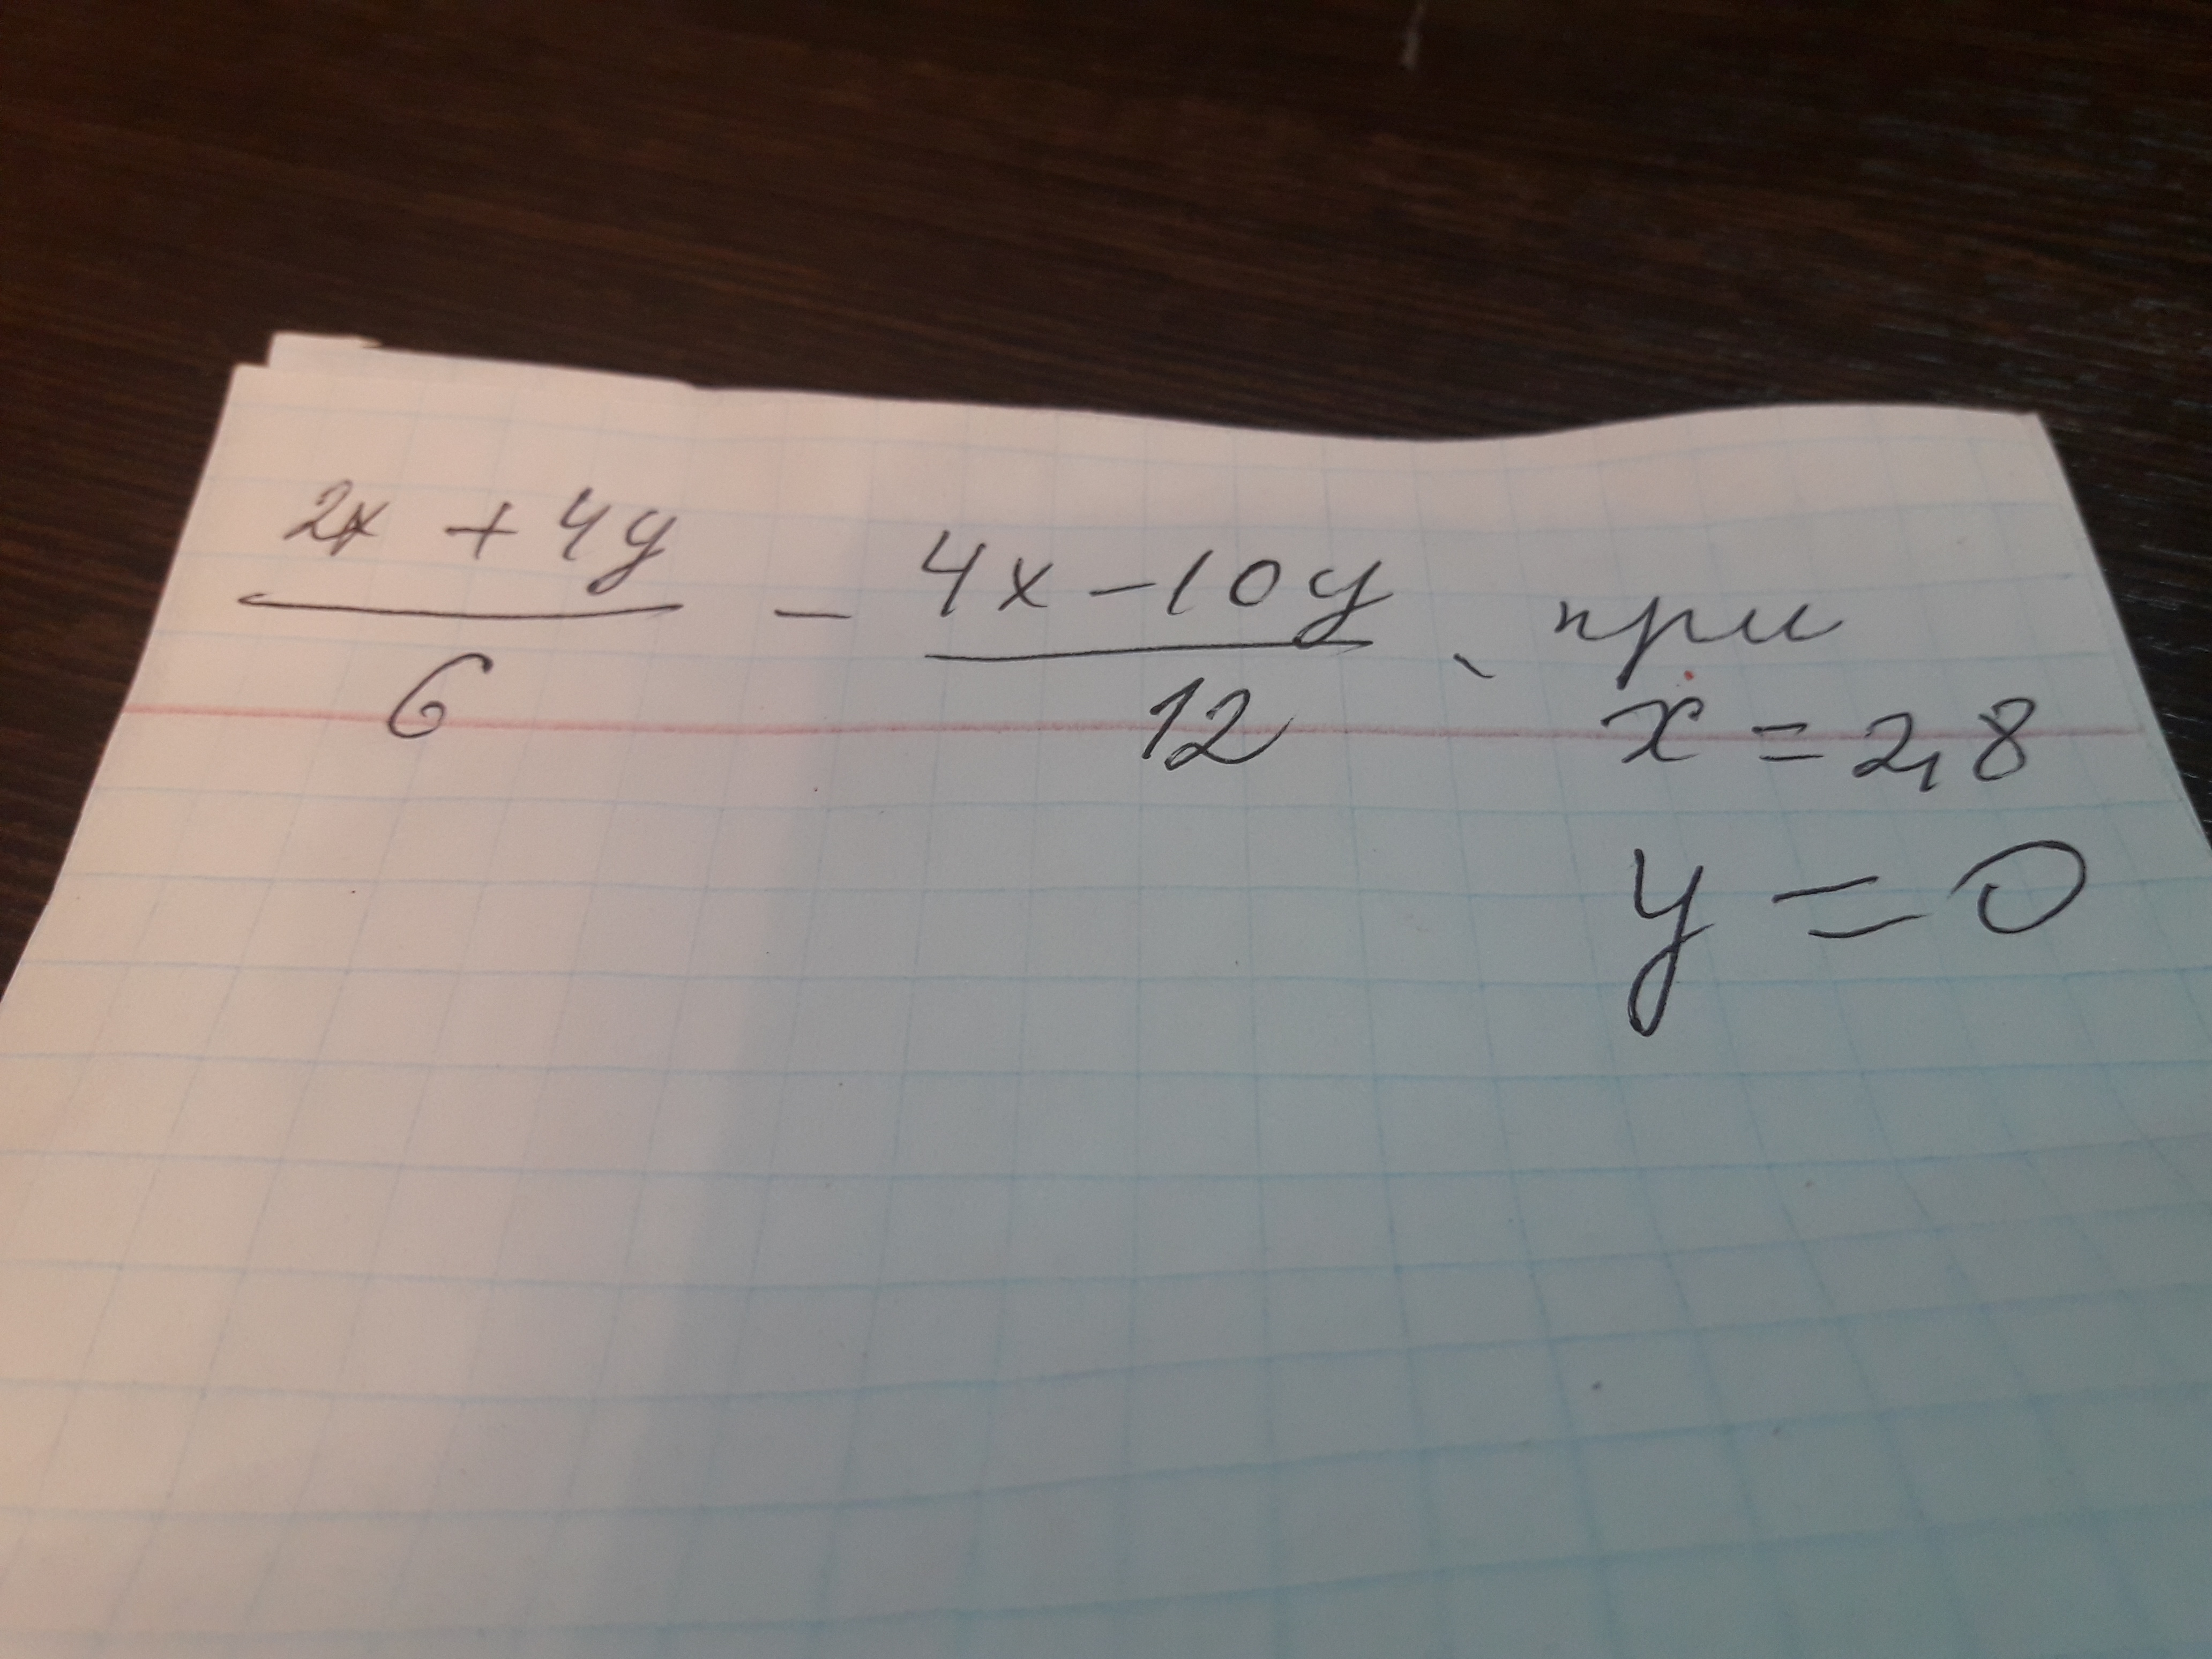 2x + 4y / 6 - 4x - 10y / 12 , при
x = 2,8
y = 0